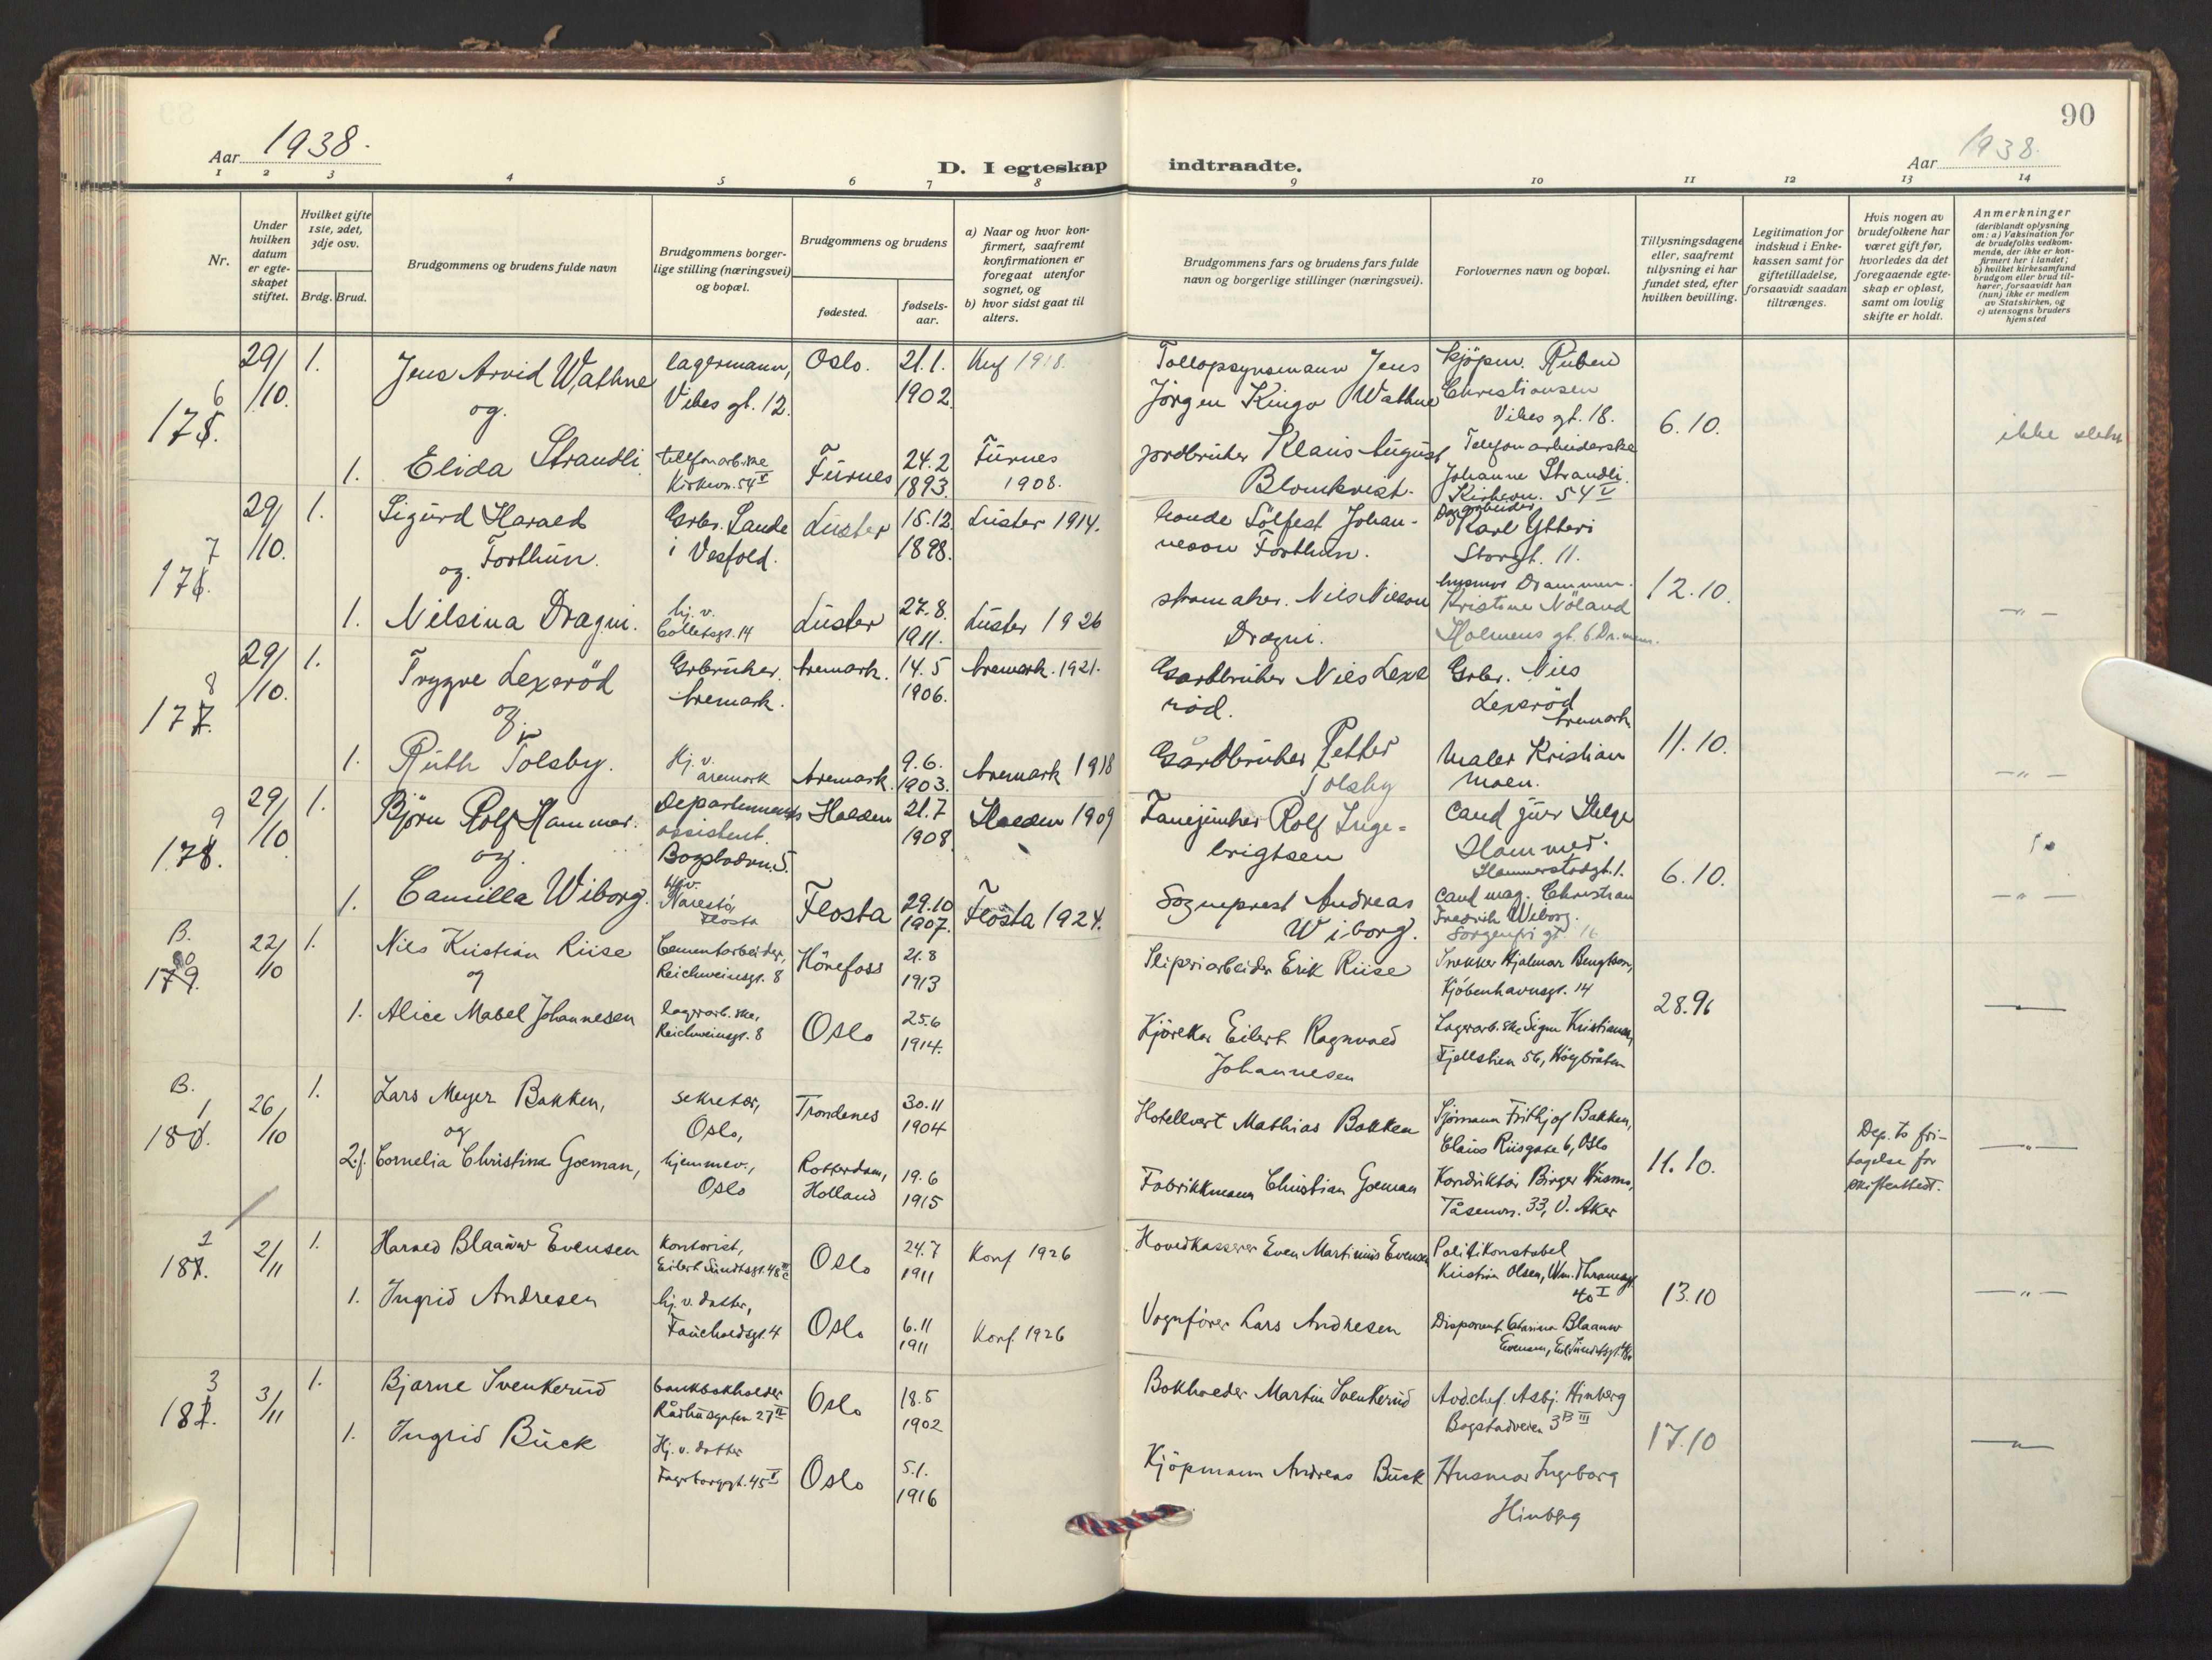 90
Aar 1938.
D. I egteskap indtraadte.
Aar 1938.
1 2 3 4 5 6 7 8 9 10 11 12 13 14
Nr.
Under hvilken datum er egteskapet stiftet.
Hvilket gifte 1ste, 2det, 3dje osv.
Brdg. Brud.
Brudgommens og brudens fulde navn
Brudgommens borgerlige stilling (næringsvei) og bopæl.
Brudgommens og brudens
fødested.
fødselsaar.
a) Naar og hvor konfirmert, saafremt konfirmationen er foregaat utenfor sognet, og
b) hvor sidst gaat til alters.
Brudgommens fars og brudens fars fulde navn og borgerlige stillinger (næringsvei).
Forlovernes navn og bopæl.
Tillysningsdagene eller, saafremt tillysning ei har fundet sted, efter hvilken bevilling.
Legitimation for indskud i Enkekassen samt for giftetilladelse, forsaavidt saadan tiltrænges.
Hvis nogen av brudefolkene har været gift før, hvorledes da det foregaaende egteskap er opløst, samt om lovlig skifte er holdt.
Anmerkninger
(deriblandt oplysning om: a) Vaksination for de brudefolks vedkommende, der ikke er konfirmert her i landet;
b) hvilket kirkesamfund brudgom eller brud tilhører, forsaavidt han (hun) ikke er medlem av Statskirken, og
c) utensogns bruders hjemsted
6
175.
29/10. 1. Jens Arvid Wathne lagermann, Vibes gt. 12. Oslo. 21.1. 1902. Knf 1918.
Tollopsynsmann Jens Jörgen Kingo Wathne
kjöpm. Ruben Christiansen Vibes gt. 18.
6.10.
og.
1. Elida Strandli telefonarb.ske Kirkevn. 54 V Furnes 24.2 1893. Furnes 1908.
jordbruker Klaus August Blomkvist.
Telefonarbeiderske Johanne Strandli. Kirkevn. 54 V
ikke slekt
7
176.
29/10. 1. Sigurd Harald Forthun. Grbr. Sande i Vesfold. Luster 15.12. 1898. Luster 1914.
bonde Sölfest Johanneson Forthun.
Karl Ytteri Storgt. 11.
12.10.
og.
1. Nilsina Drægni. hj. v. Colletsgt. 14 Luster 27.8. 1911. Luster 1926
skomaker. Nils Nilsen Drægni.
husmor Drammen. Kristine Nöland Holmens gt. 6 Dr.men.
— „ —
8
177.
29/10. 1. Trygve Lexeröd Grbruker. Aremark. Aremark. 14.5 1906. Aremark. 1921.
Gardbruker Nils Lexeröd.
Grbr. Nils Lexeröd Aremark
11.10.
og.
1. Ruth Tolsby. Hj. v. Aremark Aremark. 9.6. 1903. Aremark 1918
Gårdbruker Petter Tolsby
Maler Kristian Moen.
— „ —
9
178.
29/10 1. Björn Rolf Hammer. Departements assistent. Bogstadvn. 5. Halden 21.7 1908. Halden 1909
Fanejunker Rolf Ingebrigtsen
Cand jur Helge Hammer. Hammerstadgt. 1.
6.10.
og.
1. Camilla Wiborg. Hj. v. Narestö, Flosta Flosta 29.10 1907. Flosta 1924.
Sogneprest Andreas Wiborg.
Cand mag. Christian Fredrik Wiborg. Sorgenfri gt. 16
— „ —
B.
80
179.
22/10 1. Nils Kristian Riise Cementarbeider, Reichweinsgt. 8 Hönefoss 21.8 1913
Sliperiarbeider Erik Riise
Trekker Hjalmar Bengtson, Kjöbenhavnsgt. 14
28.9.
og
1. Alice Mabel Johannesen lagerarb.ske, Reichweinsgt. 8 Oslo 25.6 1914.
Kjörekar Eilert Ragnvald Johannesen
Lagerarb.ske Signe Kristiansen, Fjellstien 56, Höybråten
B.
1
180.
26/10 1. Lars Meyer Bakken, sekretær, Oslo, Trondenes 30.11 1904
Hotellvert Mathias Bakken
Sjömann Frithjof Bakken, Claus Riisgate 6, Oslo
11.10.
og
2.f. Cornelia Christina Goeman, hjemmev., Oslo Rotterdam, Holland 19.6 1915
Fabrikkmann Christian Goeman
Konduktör Birger Tåsenvn. 33, V. Aker
Dep. ts fritagelse for skifteattest.
— „ —
2
181.
2/11 1. Harald Blaauw Evensen Kontorist, Eilert Sundtsgt. 48 III c Oslo 24.7 1911 Konf 1926
Hovedkasserer Even Martinius Evensen
Politikonstabel Kristian Olsen, Wm. Thranesgt 40 I
13.10
1. Ingrid Andresen hj. v. datter, Fauchaldsgt. 4 Oslo 6.11 1911 Konf. 1926
Vognförer Lars Andresen
Disponent Blaauw Evensen, Eil. Sundtsgt.
— „ —
3
182.
3/11 1. Bjarne Svenkerud bankbokholder Rådhusgaten 27 II Oslo 18.5 1902
Bokholder Martin Svenkerud
Avd.chef. Asbj. Hinberg Bogstadveien 3 B III
17.10
1. Ingrid Buck Hj. v. datter Fagerborggt. 45 I Oslo 5.1. 1916
Kjöpmann Andreas Buck
Husmor Ingeborg Hinberg
— „ —